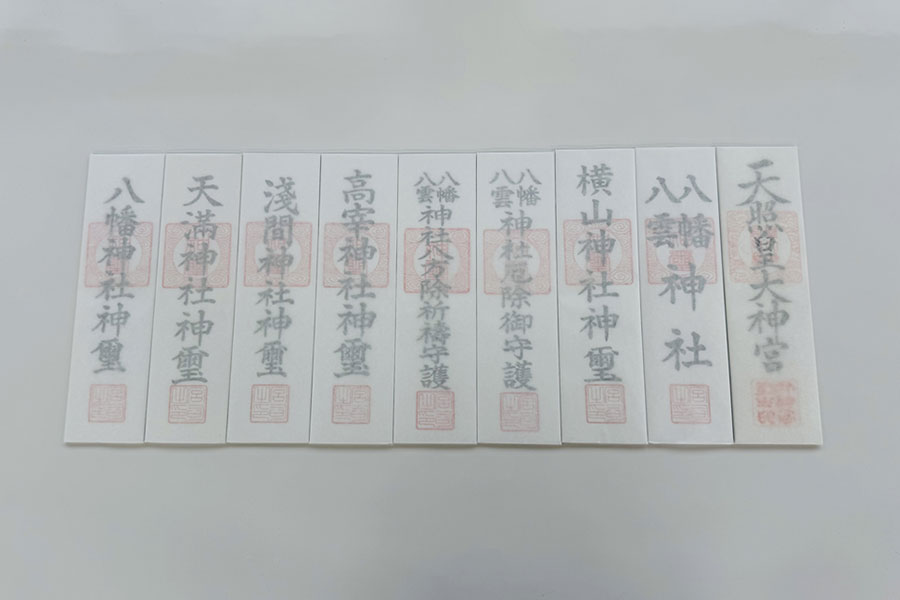 天照皇大神宮
八幡八雲神社
横山神社神璽
八幡八雲神社厄除御守護
八幡八雲神社八方除祈禱守護
高宰神社神璽
淺間神社神璽
天満神社神璽
八幡神社神璽